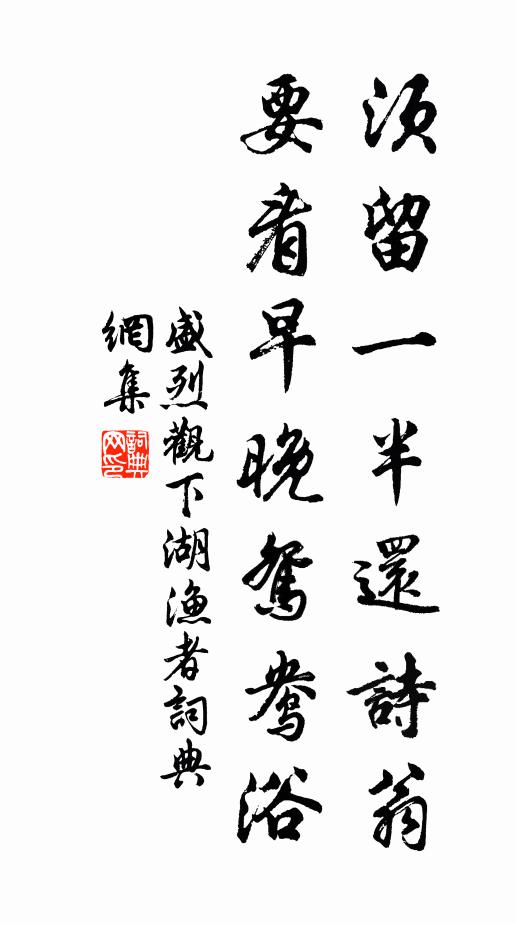 須留一半還詩翁
要看早晚鴛鴦浴
盛烈觀下湖漁者詞典
網集
詞典網印